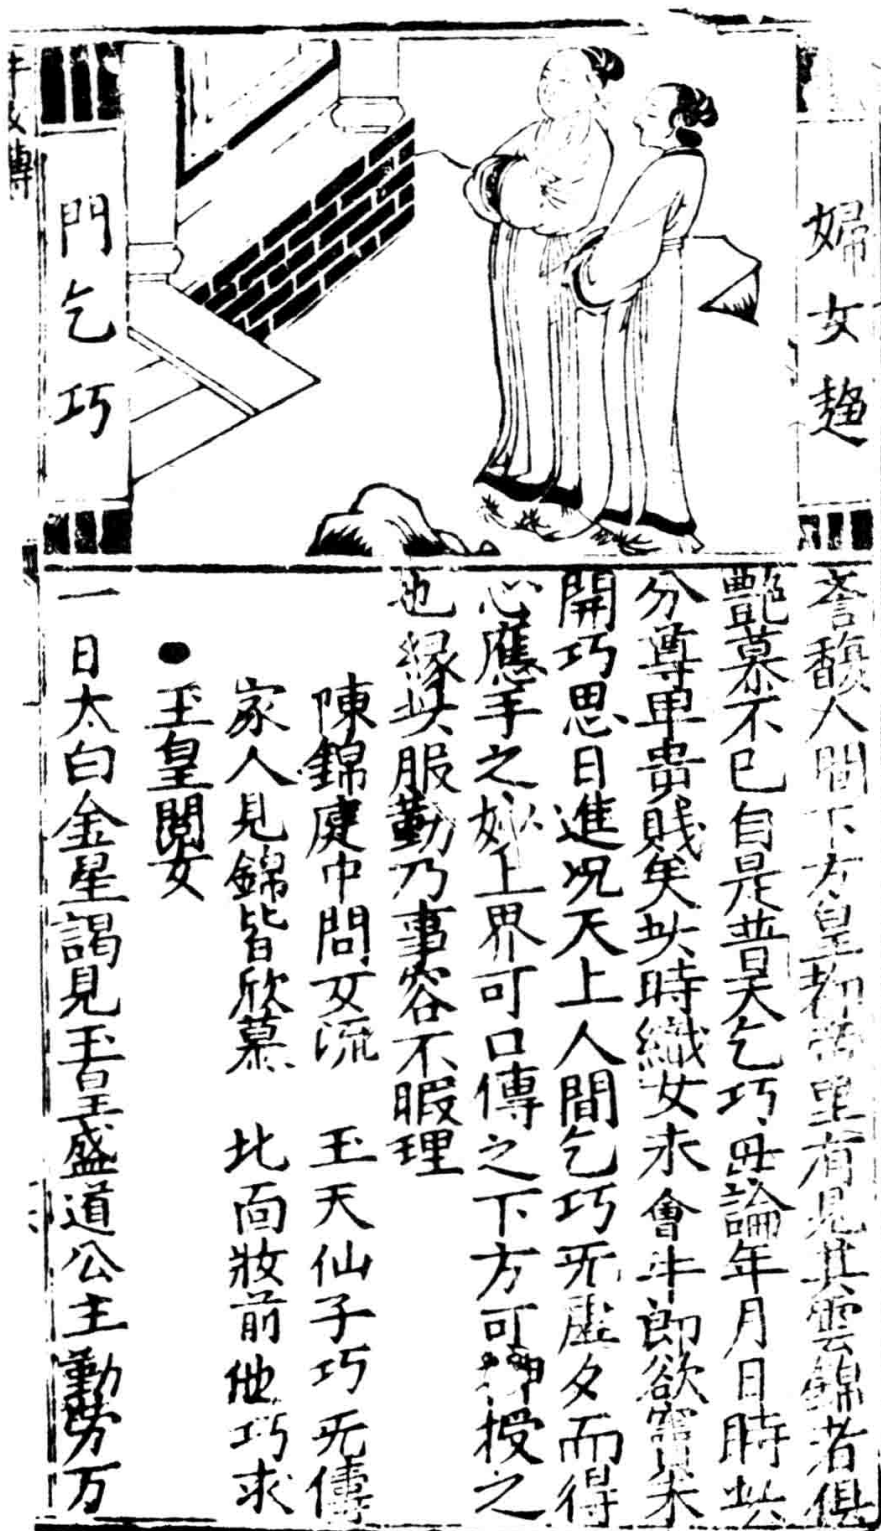 婦女趨
門乞巧
牛女傳
馥人間下方皇都帝里有見其雲錦者俱
艷慕不已自是普天乞巧毋論年月日時
分尊卑貴賤矣此時織女未會牛郎欲竇未
開巧思日進况天上人間乞巧旡虚夕而得
心應手之妙上界可口傳之下方可神授之
也緣此服勤乃事容不暇理
陳錦庭中問女流　玉天仙子巧旡儔
家人見錦皆欣慕　北面妝前他巧求
●玉皇閱女
一日太白金星謁見玉皇盛道公主勤勞万